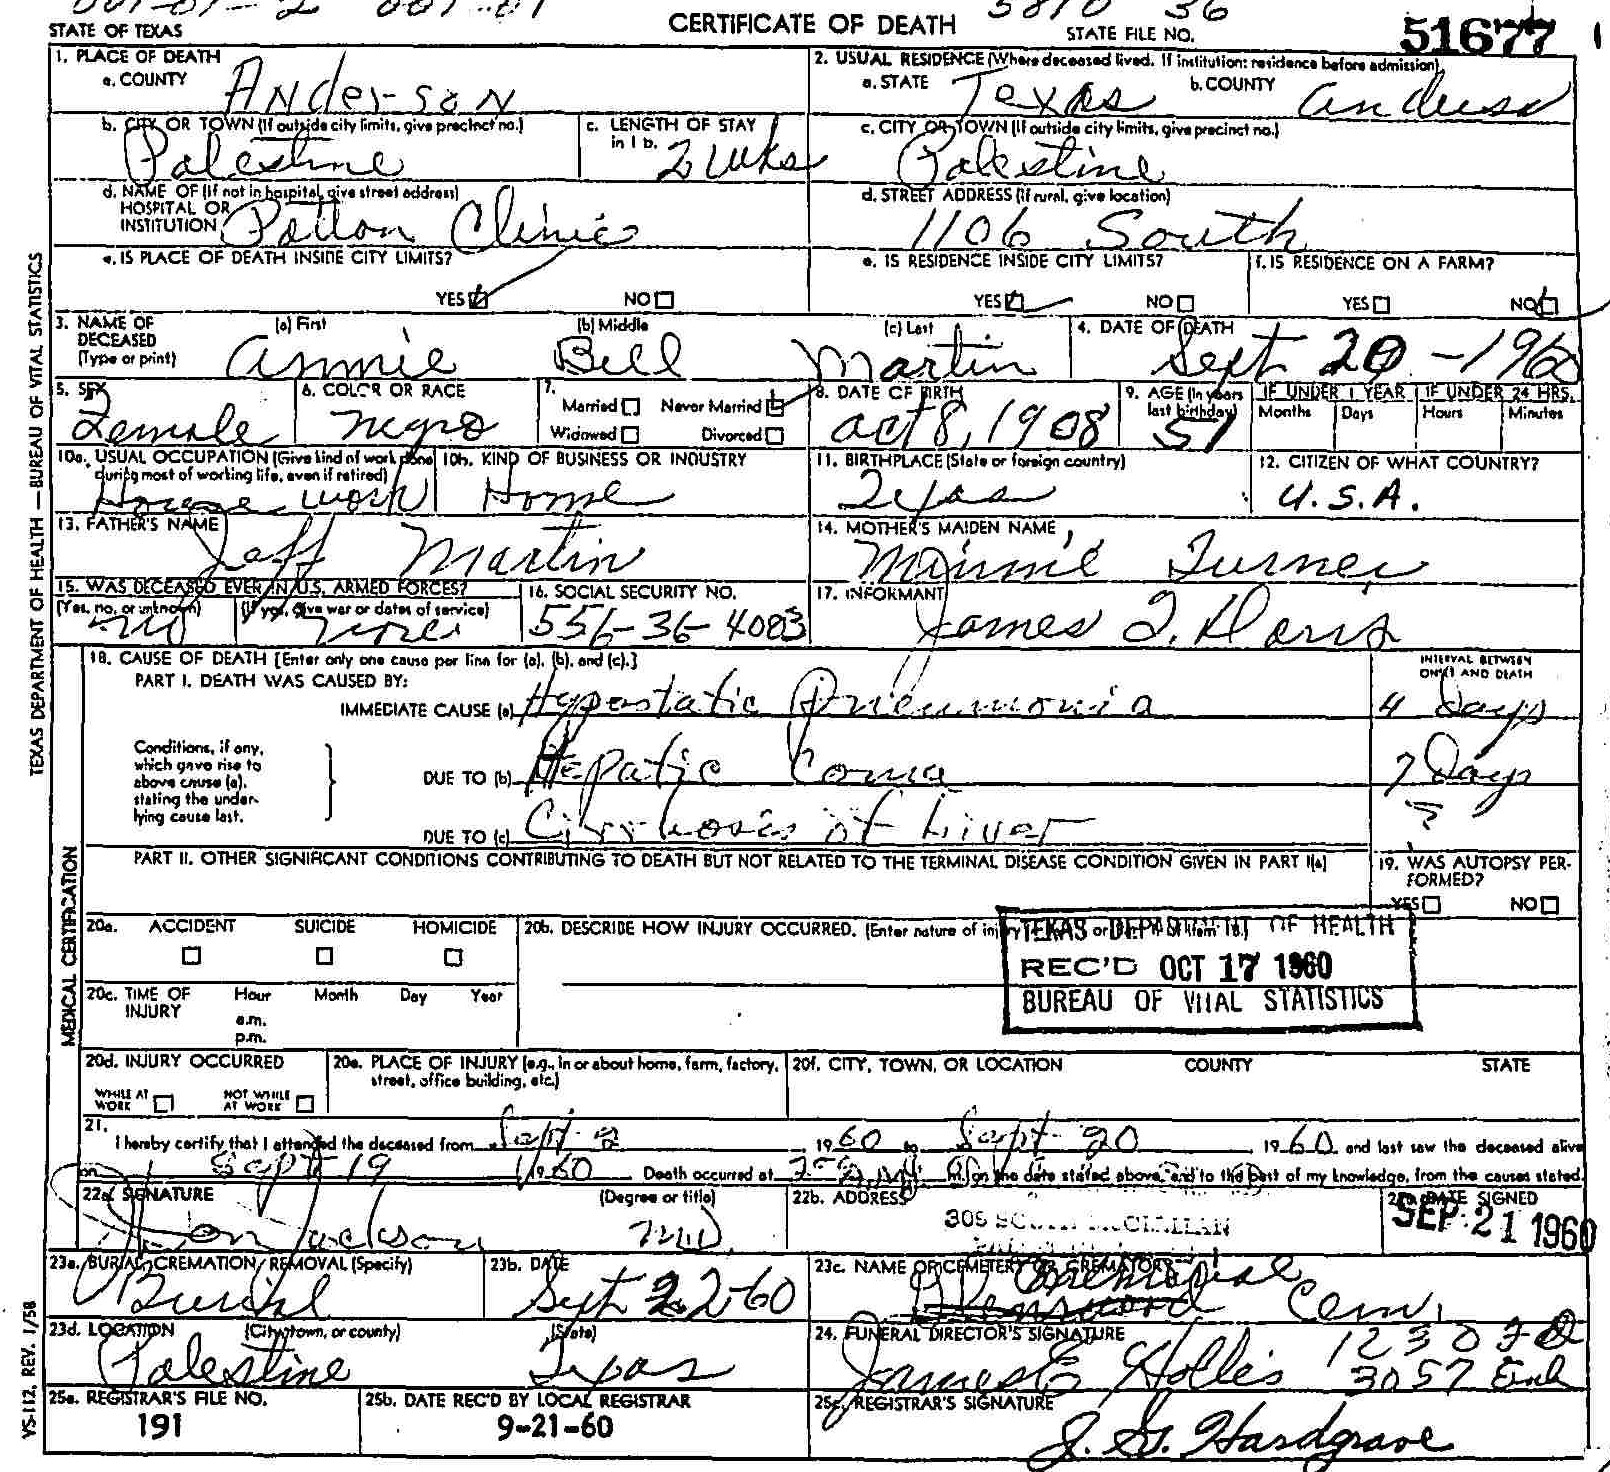 CERTIFICATE OF DEATH
STATE OF TEXAS
STATE FILE NO.
51677
1. PLACE OF DEATH
a. COUNTY
Anderson
2. USUAL RESIDENCE (Where deceased lived. If institution: residence before admission)
a. STATE Texas b. COUNTY
b. CITY OR TOWN (If outside city limits, give precinct no.)
Palestine
c. LENGTH OF STAY in 1 b.
2 wks
c. CITY OR TOWN (If outside city limits, give precinct no.)
Palestine
d. NAME OF (If not in hospital, give street address)
HOSPITAL OR
INSTITUTION
Clinic
d. STREET ADDRESS (If rural, give location)
1106 South
e. IS PLACE OF DEATH INSIDE CITY LIMITS?
YES NO
e. IS RESIDENCE INSIDE CITY LIMITS?
YES NO
f. IS RESIDENCE ON A FARM?
YES NO
3. NAME OF DECEASED (Type or print)
(a) First (b) Middle (c) Last
Annie Bell Martin
4. DATE OF DEATH
Sept 20-1960
5. SEX
Female
6. COLOR OR RACE
negro
7.
Married Never Married
Widowed Divorced
8. DATE OF BIRTH
Oct 8, 1908
9. AGE (In years last birthday)
51
IF UNDER 1 YEAR
Months Days
IF UNDER 24 HRS.
Hours Minutes
10a. USUAL OCCUPATION (Give kind of work done during most of working life, even if retired)
House work
10b. KIND OF BUSINESS OR INDUSTRY
Home
11. BIRTHPLACE (State or foreign country)
Texas
12. CITIZEN OF WHAT COUNTRY?
U.S.A.
13. FATHER'S NAME
Jeff Martin
14. MOTHER'S MAIDEN NAME
Minnie Turner
15. WAS DECEASED EVER IN U.S. ARMED FORCES?
(Yes, no, or unknown) (If yes, give war or dates of service)
no none
16. SOCIAL SECURITY NO.
556-36-4083
17. INFORMANT
James
18. CAUSE OF DEATH [Enter only one cause per line for (a), (b), and (c).]
PART I. DEATH WAS CAUSED BY:
INTERVAL BETWEEN ONSET AND DEATH
IMMEDIATE CAUSE (a) Hypostatic Pneumonia 4 Days
Conditions, if any, which gave rise to above cause (a), stating the underlying cause last.
DUE TO (b) Hepatic Coma 7 Days
DUE TO (c) Cirrhosis of Liver ?
PART II. OTHER SIGNIFICANT CONDITIONS CONTRIBUTING TO DEATH BUT NOT RELATED TO THE TERMINAL DISEASE CONDITION GIVEN IN PART I(a)
19. WAS AUTOPSY PERFORMED?
YES NO
20a. ACCIDENT SUICIDE HOMICIDE
20b. DESCRIBE HOW INJURY OCCURRED. (Enter nature of injury
TEXAS DEPARTMENT OF HEALTH
REC'D OCT 17 1960
BUREAU OF VITAL STATISTICS
20c. TIME OF INJURY
Hour Month Day Year
a.m.
p.m.
20d. INJURY OCCURRED
WHILE AT WORK NOT WHILE AT WORK
20e. PLACE OF INJURY (e.g., in or about home, farm, factory, street, office building, etc.)
20f. CITY, TOWN, OR LOCATION COUNTY STATE
21.
I hereby certify that I attended the deceased from Sept 1960 to Sept-20 1960 and last saw the deceased alive
on Sept 19 1960 Death occurred at M. on the date stated above, and to the best of my knowledge, from the causes stated.
22a. SIGNATURE (Degree or title)
Jackson MD
22b. ADDRESS
22c. DATE SIGNED
SEP 21 1960
23a. BURIAL, CREMATION, REMOVAL (Specify)
Burial
23b. DATE
Sept 22-60
23c. NAME OF CEMETERY OR CREMATORY
Cem.
23d. LOCATION (City, town, or county) (State)
Palestine Texas
24. FUNERAL DIRECTOR'S SIGNATURE
James E Hollis
3057
25a. REGISTRAR'S FILE NO.
191
25b. DATE REC'D BY LOCAL REGISTRAR
9-21-60
25c. REGISTRAR'S SIGNATURE
Hardgrave
TEXAS DEPARTMENT OF HEALTH — BUREAU OF VITAL STATISTICS
MEDICAL CERTIFICATION
VS-112, REV. 1/58